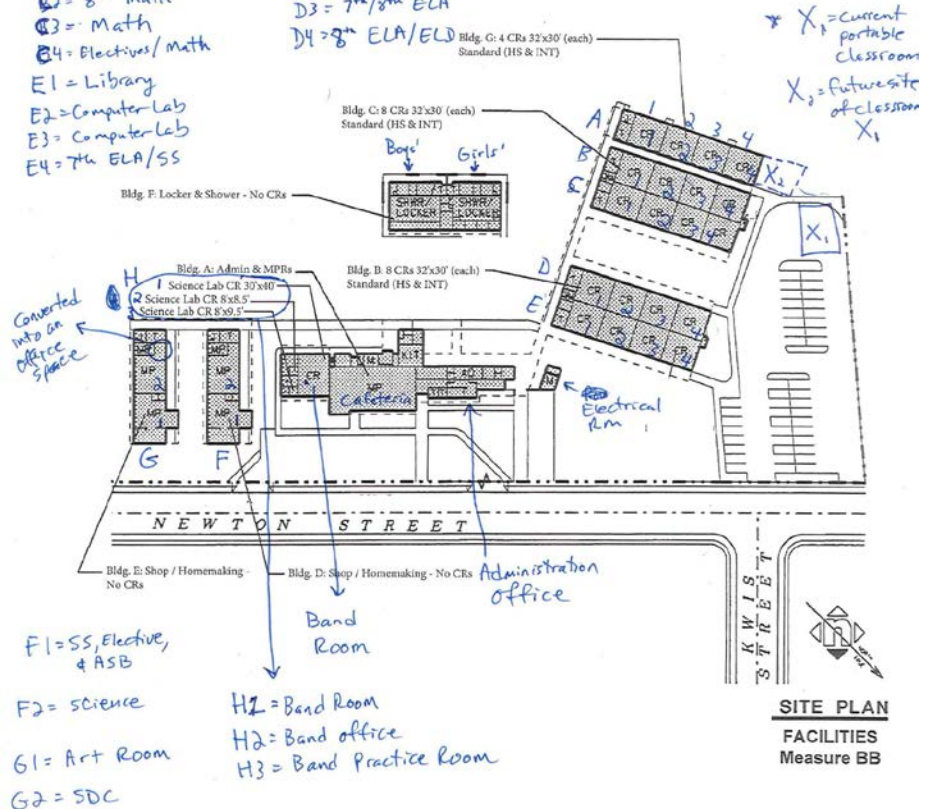 Math
C3 = Math
C4 = Electives/Math
E1 = Library
E2 = Computer Lab
E3 = Computer Lab
E4 = 7th ELA/SS
D3 = 7th/8th ELA
D4 = 8th ELA/ELD
* X1 = Current
portable
classroom
X2 = future site
of classroom
X1
Bldg. G: 4 CRs 32'x30' (each)
Standard (HS & INT)
Bldg. C: 8 CRs 32'x30' (each)
Standard (HS & INT)
Boys' Girls'
Bldg. F: Locker & Shower - No CRs
SHWR/ SHWR/
LOCKER LOCKER
A 1 2 3 4
CR CR CR CR
1 2 3 4
B
CR CR CR CR
1 2 3 4
C
CR CR CR CR
1 2 3 4
X2
X1
Bldg. A: Admin & MPRs
Bldg. B. 8 CRs 32'x30' (each)
Standard (HS & INT)
D
CR CR CR CR
1 2 3 4
E
CR CR CR CR
1 2 3 4
H
1 Science Lab CR 30'x40'
2 Science Lab CR 8'x8.5'
3 Science Lab CR 8'x9.5'
Converted
into an
office
space
MP MP
MP 2 MP 2
MP 1 MP 1
G F
CR
KIT
MP
Cafeteria
AD H
M
Electrical
Rm
NEWTON STREET
KWIS
STREET
Bldg. E: Shop / Homemaking -
No CRs
Bldg. D: Shop / Homemaking - No CRs
Administration
Office
Band
Room
F1 = SS, Elective,
& ASB
F2 = Science
G1 = Art Room
G2 = SDC
H1 = Band Room
H2 = Band office
H3 = Band Practice Room
n
SITE PLAN
FACILITIES
Measure BB